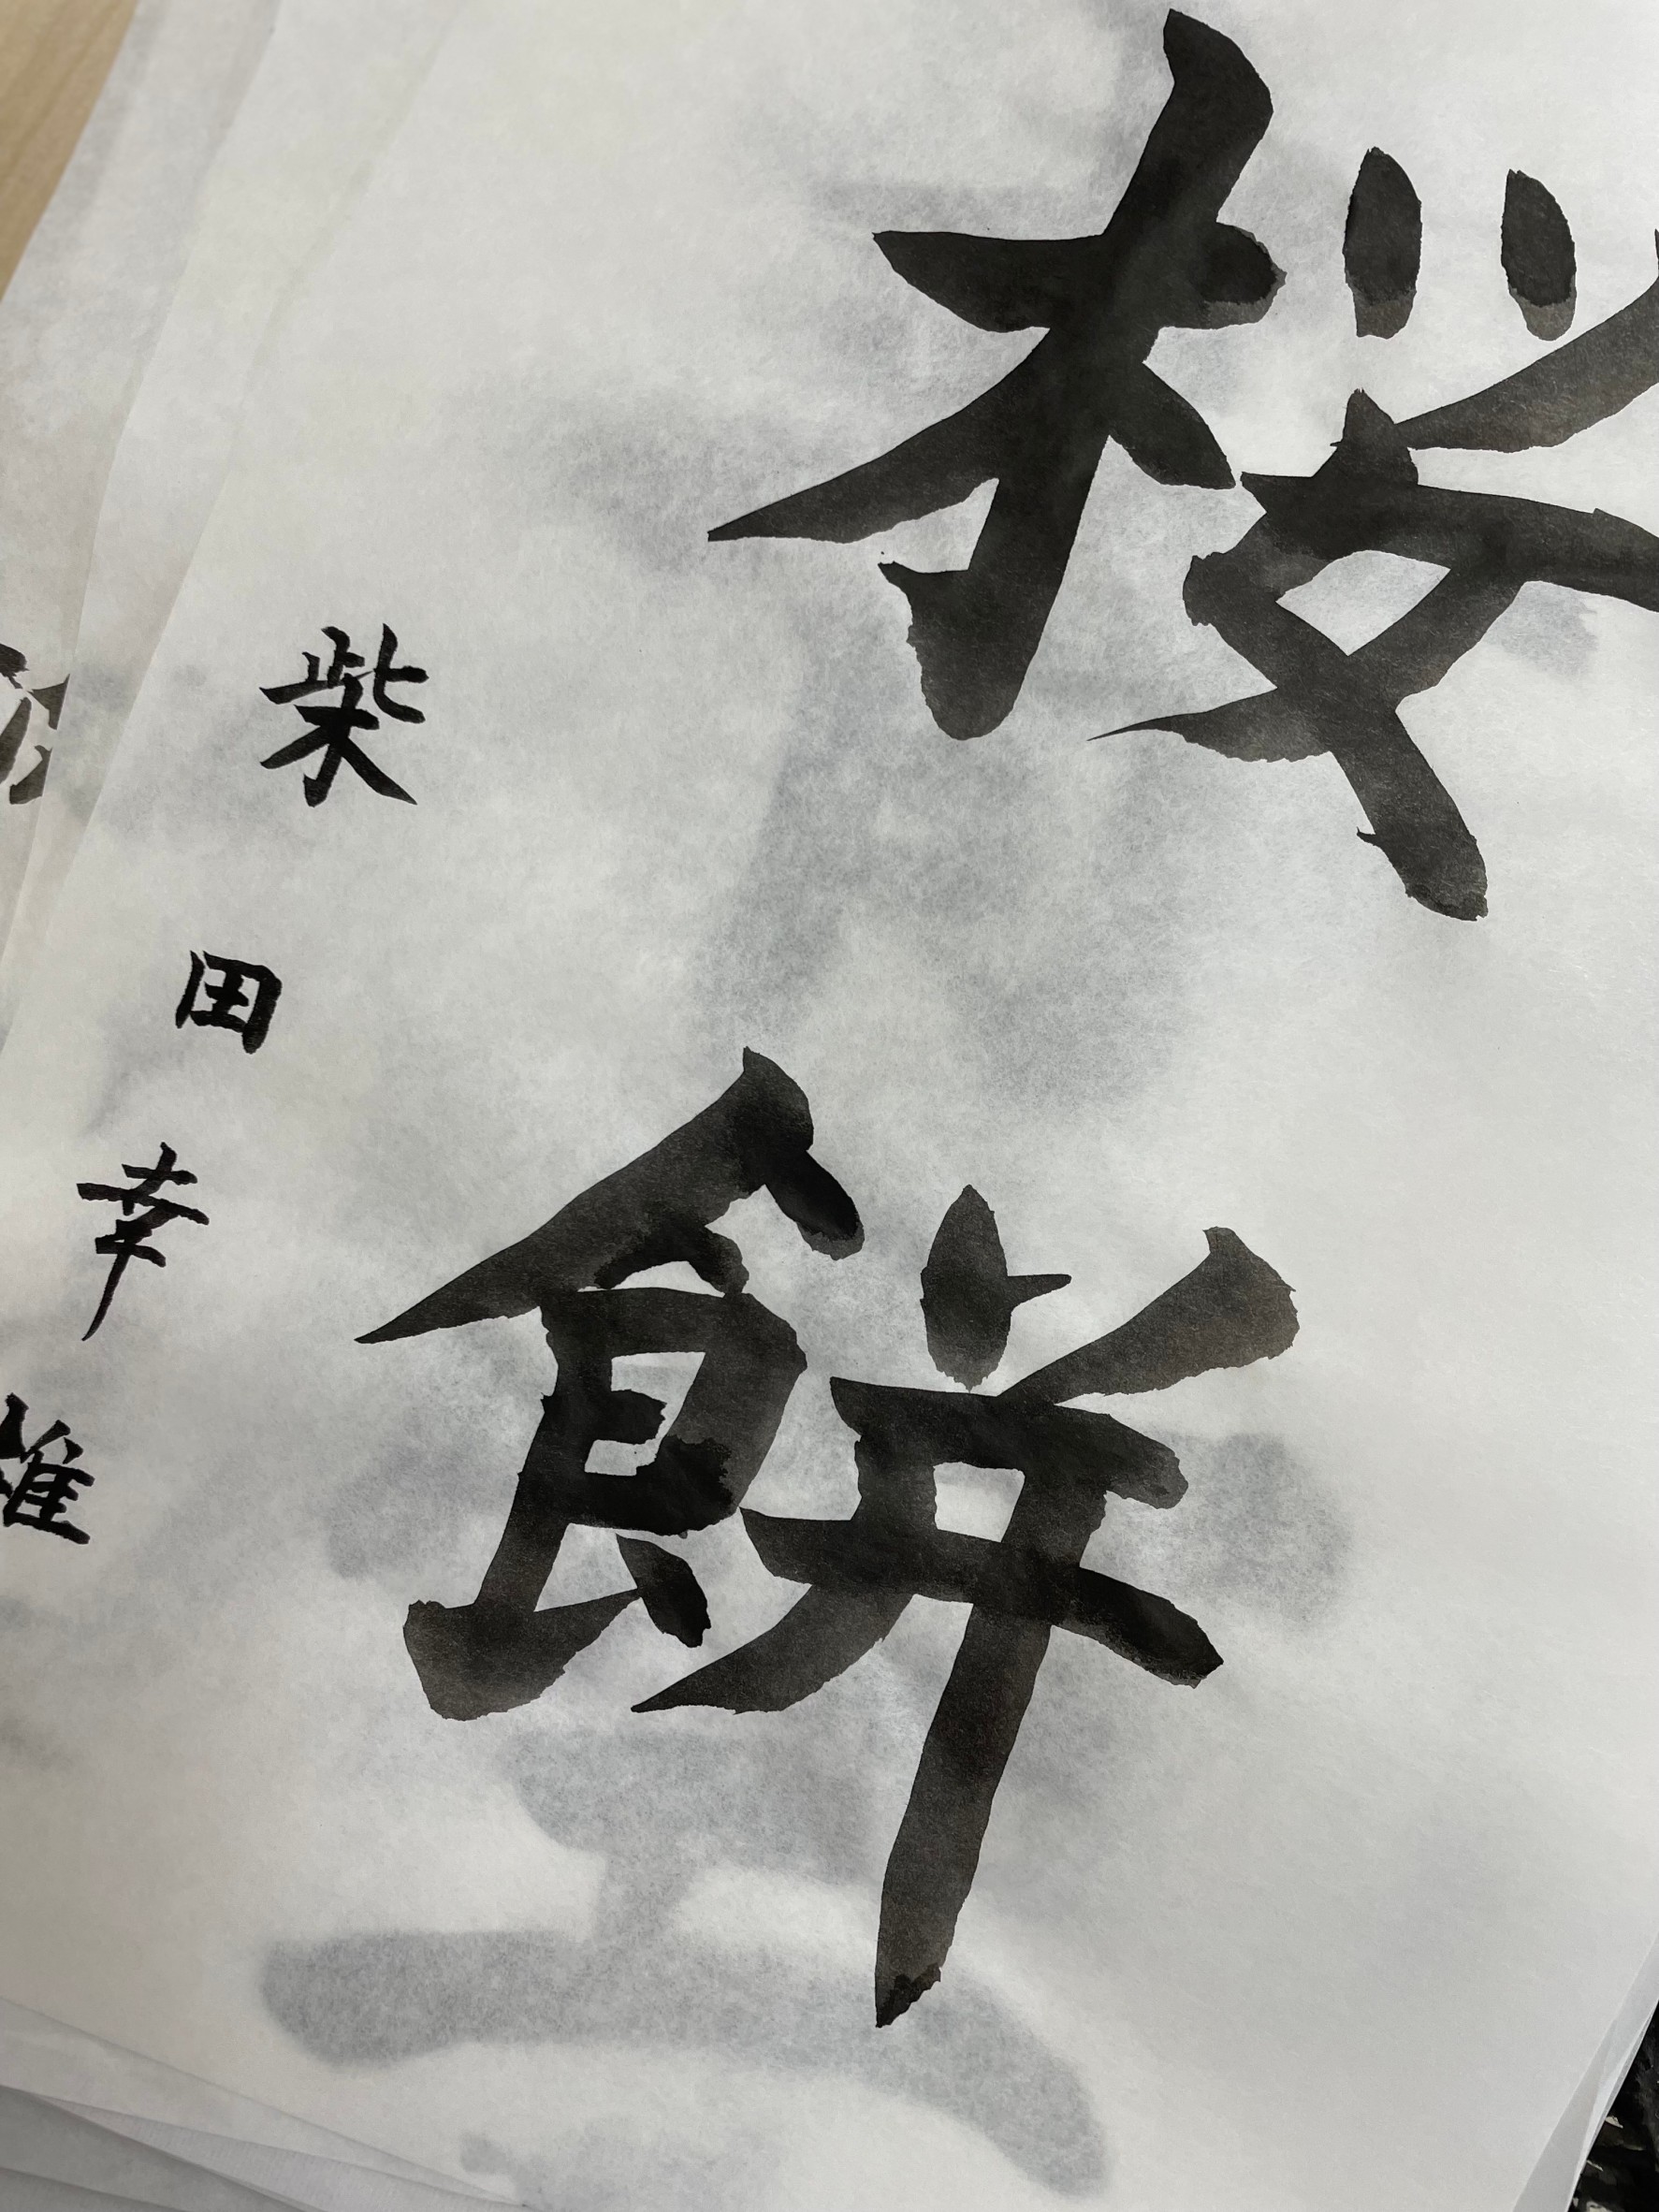 桜餅
柴田幸雄